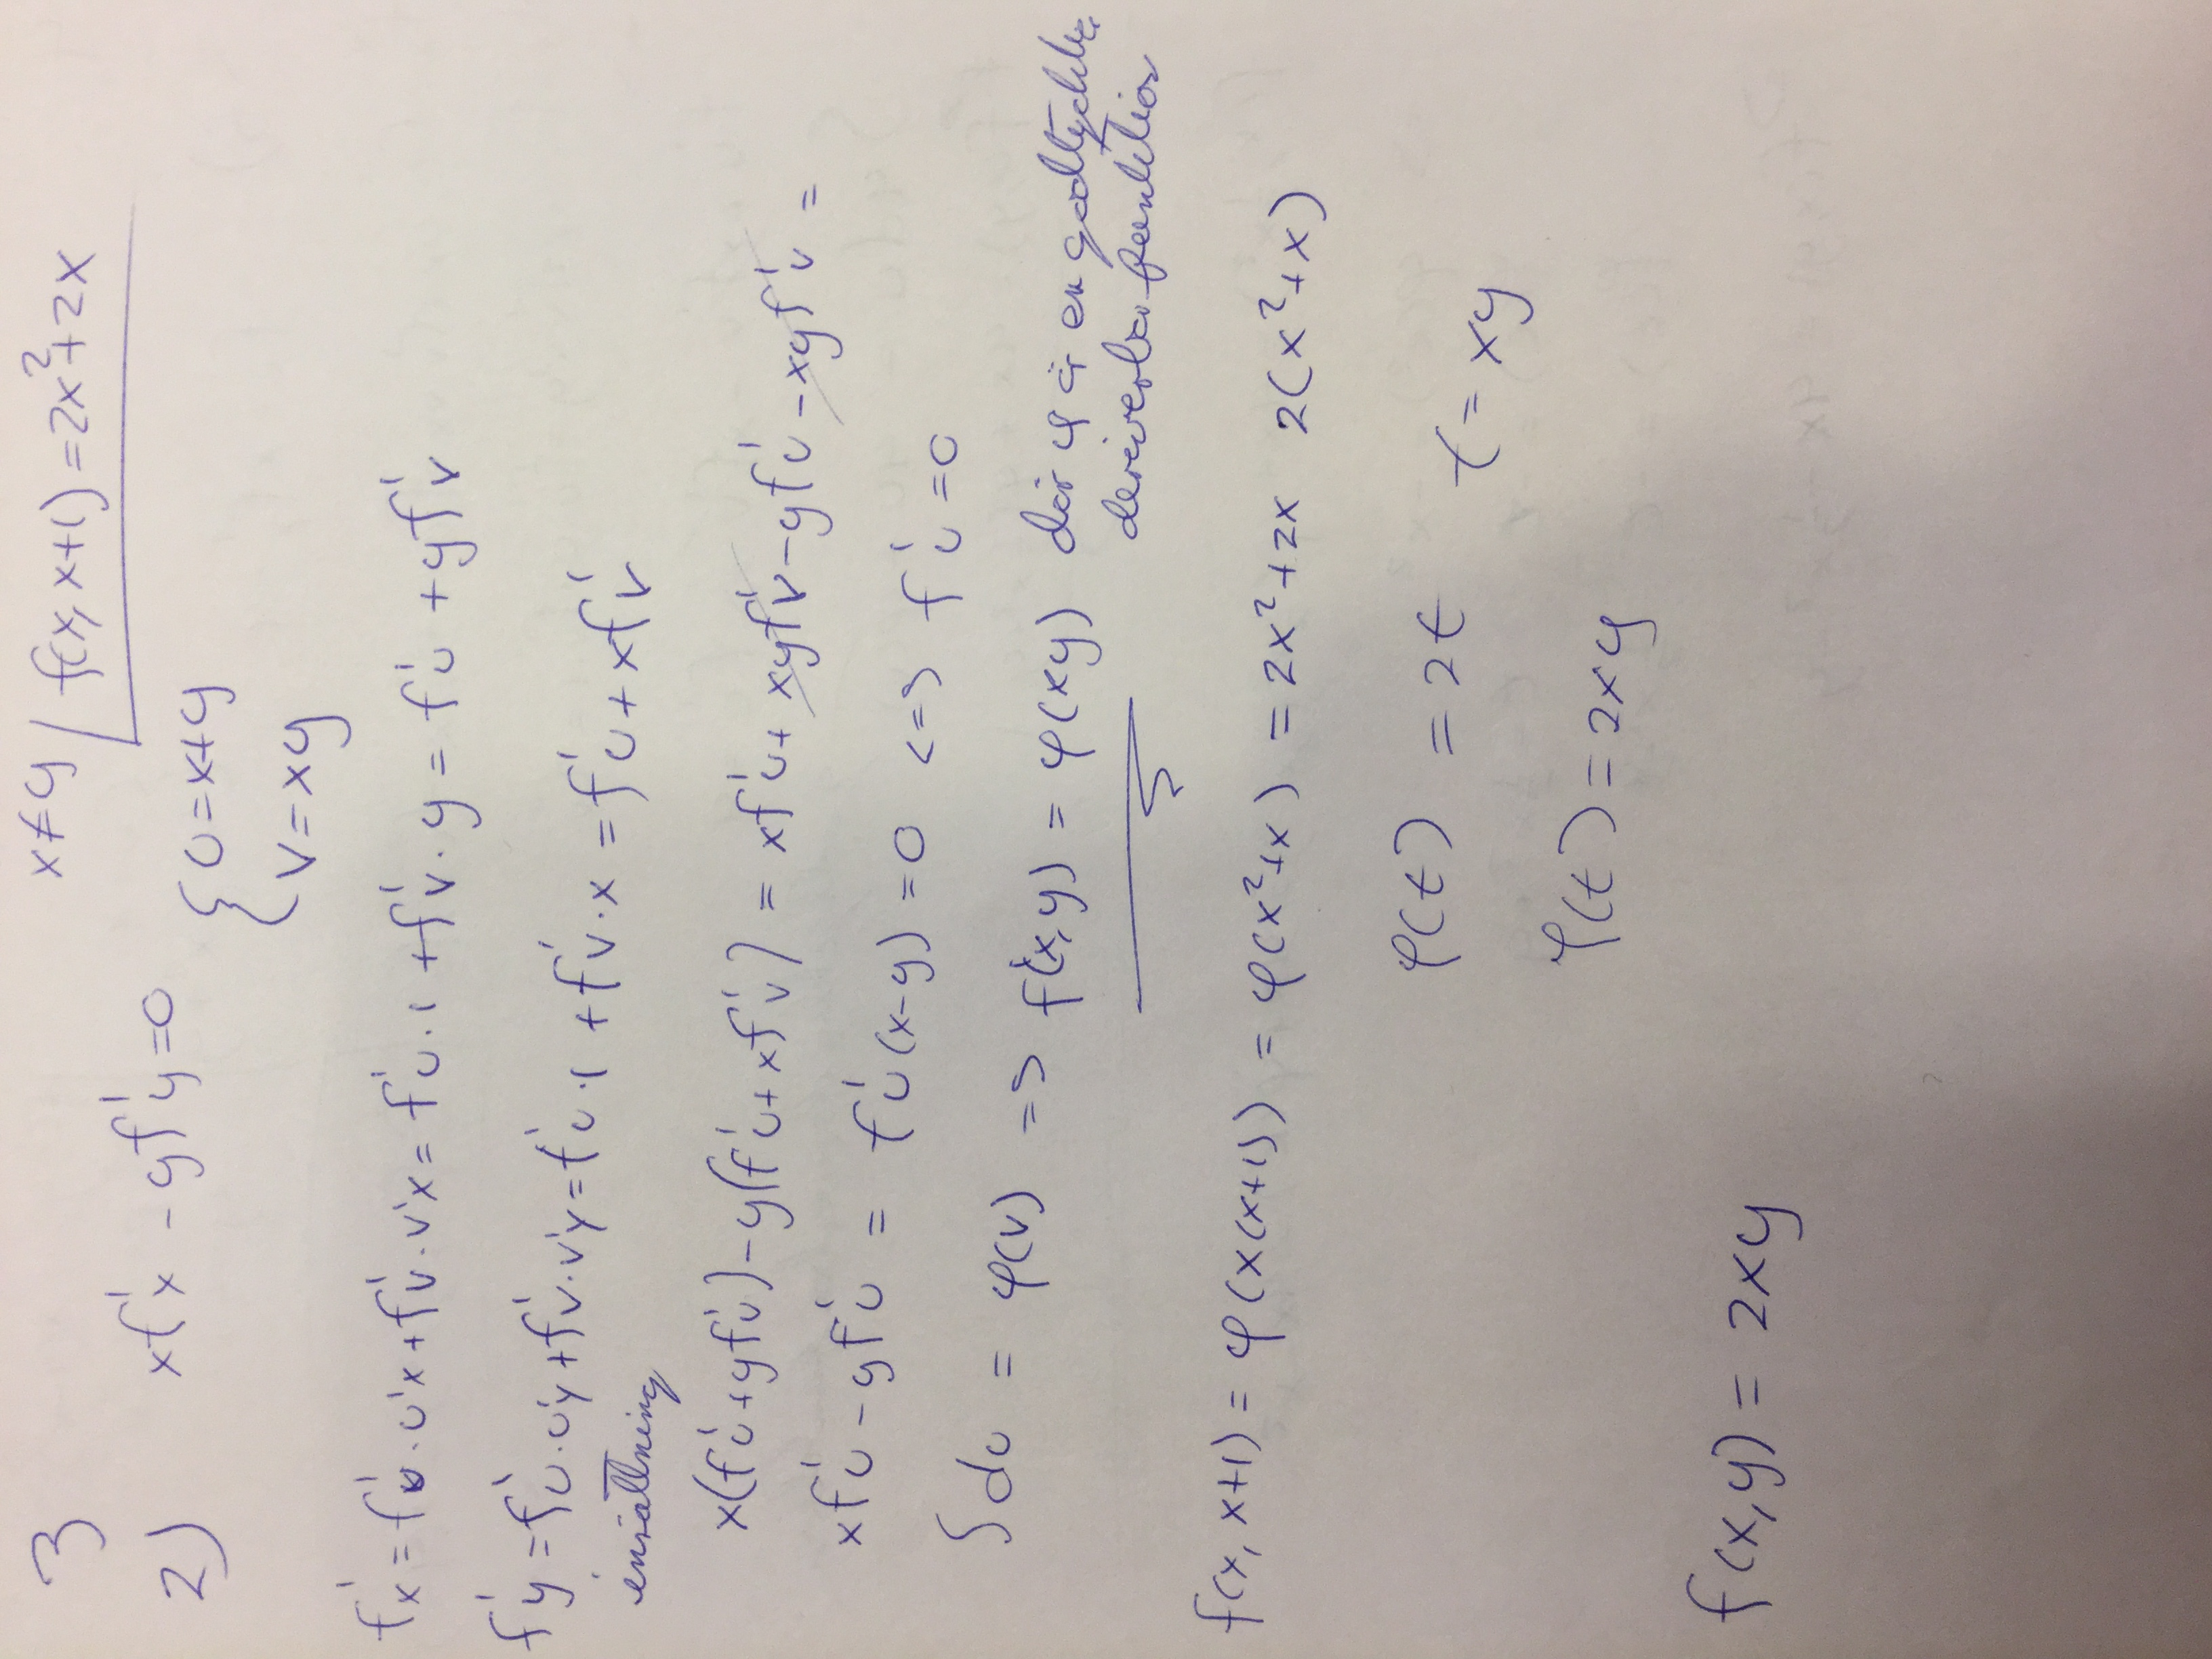 3 x≠y | f(x, x+1) = 2x²+2x
2) xf'x - yf'y = 0
{ u = x+y
v = xy
f'x = f'u · u'x + f'v · v'x = f'u · 1 + f'v · y = f'u + yf'v
f'y = f'u · u'y + f'v · v'y = f'u · 1 + f'v · x = f'u + xf'v
insättning
x(f'u + yf'u) - y(f'u + xf'v) = xf'u + xyf'v - yf'u - xyf'v =
xf'u - yf'u = f'u(x-y) = 0 <=> f'u = 0
∫du = φ(v) => f(x,y) = φ(xy) där φ är en godtycklig
deriverbar funktion
f(x, x+1) = φ(x(x+1)) = φ(x²+x) = 2x²+2x 2(x²+x)
φ(t) = 2t t = xy
φ(t) = 2xy
f(x,y) = 2xy